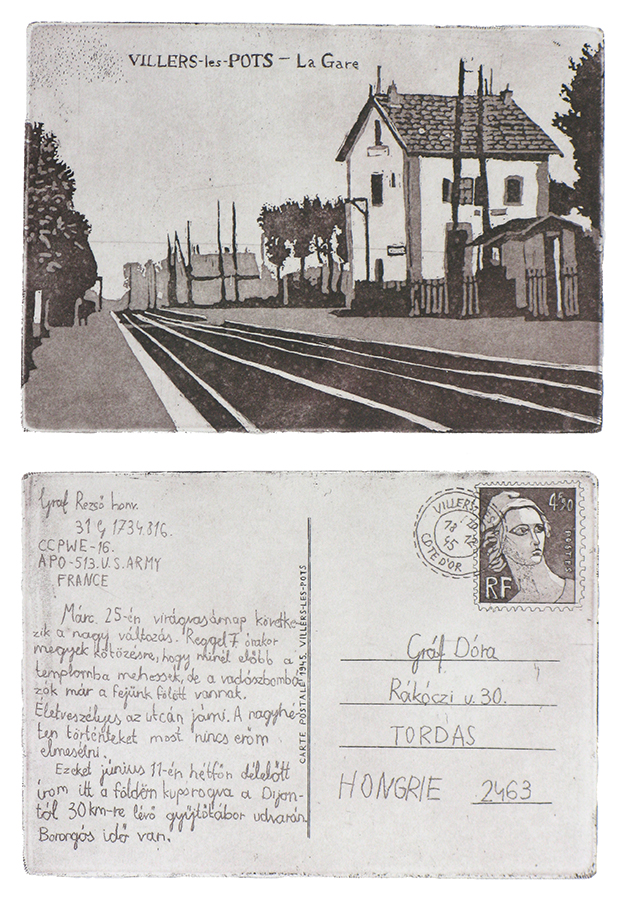 VILLERS-les-POTS - La Gare
Gráf Rezső honv.
31 G 1734.816.
CCPWE-16.
APO-513.U.S.ARMY
FRANCE
Márc. 25-én virágvasárnap követke-
zik a nagy változás. Reggel 7 órakor
megyek kötözésre, hogy minél előbb a
templomba mehessek, de a vadászbombá-
zók már a fejünk fölött vannak.
Életveszélyes az utcán járni. A nagyhé-
ten történteket most nincs erőm
elmesélni.
Ezeket június 11-én hétfőn délelőtt
írom itt a földön kuporogva a Dijon-
tól 30 km-re lévő gyűjtőtábor udvarán.
Borongós idő van.
CARTE POSTALE 1945. VILLERS-LES-POTS
VILLERS-LES
18
45
COTE D'OR
4F50
RF
Gráf Dóra
Rákóczi u. 30.
TORDAS
HONGRIE 2463